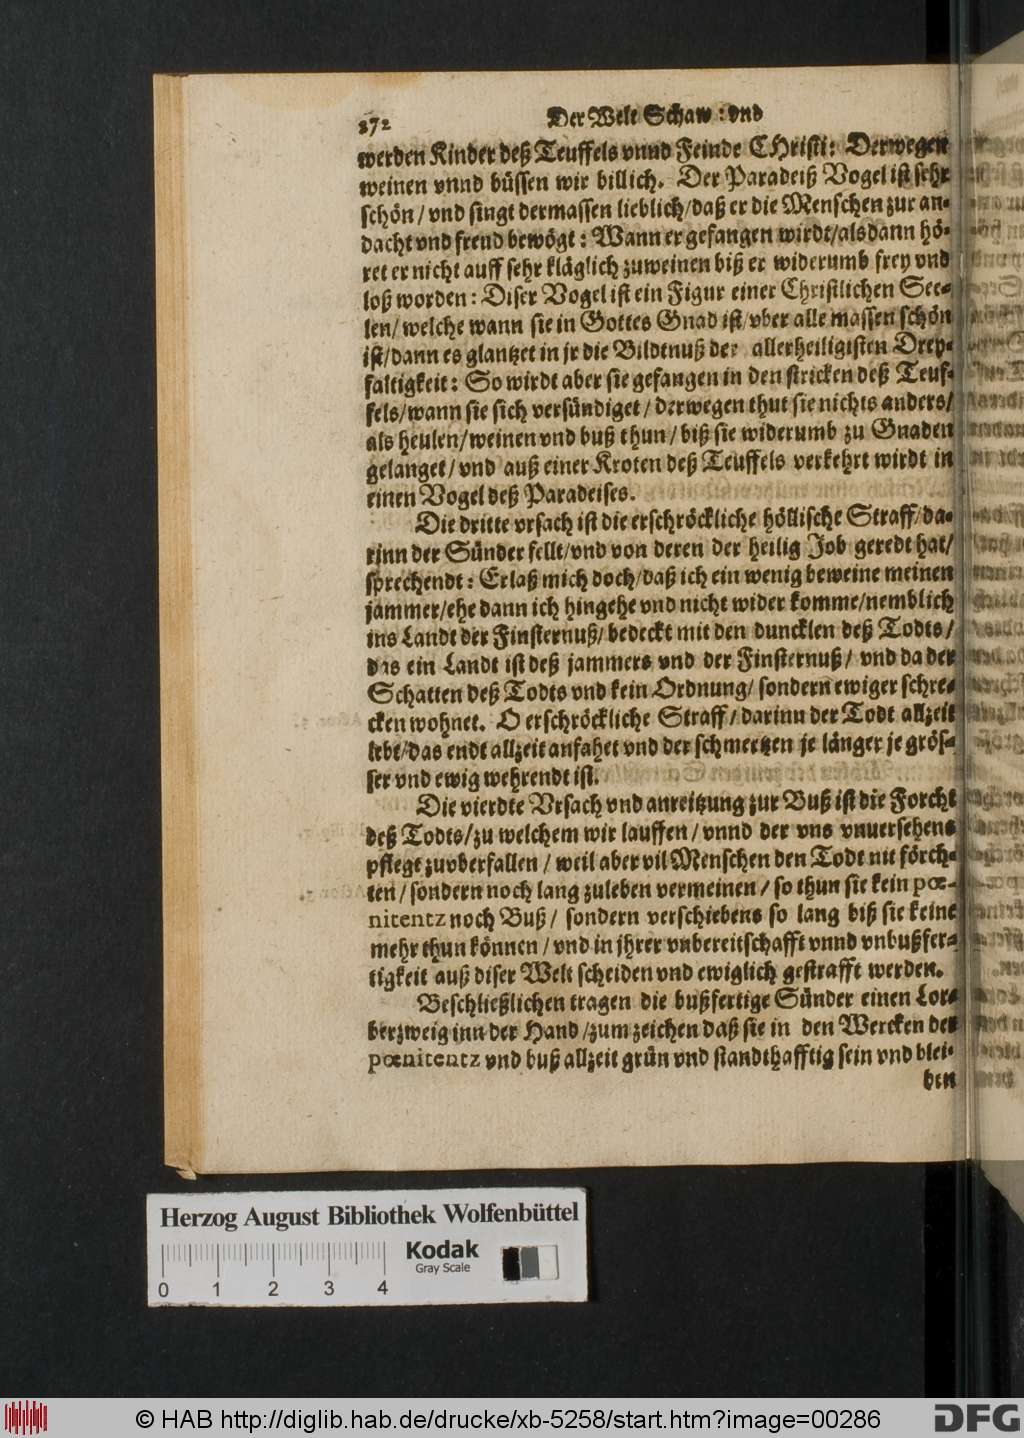 272 Der Welt Schaw: vnd
werden Kinder deß Teuffels vnnd Feinde CHristi: Derwegen
weinen vnnd büssen wir billich. Der Paradeiß Vogel ist sehr
schön / vnd singt dermassen lieblich/daß er die Menschen zur an-
dacht vnd freud bewögt: Wann er gefangen wirdt/alsdann hö-
ret er nicht auff sehr kläglich zuweinen biß er widerumb frey vnd
loß worden: Diser Vogel ist ein Figur einer Christlichen See-
len/ welche wann sie in Gottes Gnad ist/vber alle massen schön
ist/dann es glantzet in jr die Bildtnuß der allerheiligisten Drey-
faltigkeit: So wirdt aber sie gefangen in den stricken deß Teuf-
fels/wann sie sich versündiget / derwegen thut sie nichts anders/
als heulen/weinen vnd buß thun / biß sie widerumb zu Gnaden
gelanget / vnd auß einer Kroten deß Teuffels verkehrt wirdt in
einen Vogel deß Paradeises.
Die dritte vrsach ist die erschröckliche höllische Straff/da-
rinn der Sünder fellt/vnd von deren der heilig Job geredt hat/
sprechendt: Erlaß mich doch/daß ich ein wenig beweine meinen
jammer/ehe dann ich hingehe vnd nicht wider komme/nemblich
ins Landt der Finsternuß/ bedeckt mit den duncklen deß Todts /
das ein Landt ist deß jammers vnd der Finsternuß / vnd da der
Schatten deß Todts vnd kein Ordnung/ sondern ewiger schre-
cken wohnet. O erschröckliche Straff / darinn der Todt allzeit
lebt/das endt allzeit anfahet vnd der schmertzen je länger je grös-
ser vnd ewig wehrendt ist.
Die vierdte Vrsach vnd anreitzung zur Buß ist die Forcht
deß Todts/zu welchem wir lauffen / vnnd der vns vnuersehens
pflegt zuvberfallen / weil aber vil Menschen den Todt nit förch-
ten / sondern noch lang zuleben vermeinen / so thun sie kein pœ-
nitentz noch Buß / sondern verschiebens so lang biß sie keine
mehr thun können / vnd in jhrer vnbereitschafft vnnd vnbußfer-
tigkeit auß diser Welt scheiden vnd ewiglich gestrafft werden.
Beschließlichen tragen die bußfertige Sünder einen Lor-
berzweig inn der Hand /zum zeichen daß sie in den Wercken der
pœnitentz vnd buß allzeit grün vnd standthafftig sein vnd blei-
ben
Herzog August Bibliothek Wolfenbüttel
Kodak
Gray Scale
0 1 2 3 4
© HAB http://diglib.hab.de/drucke/xb-5258/start.htm?image=00286
DFG